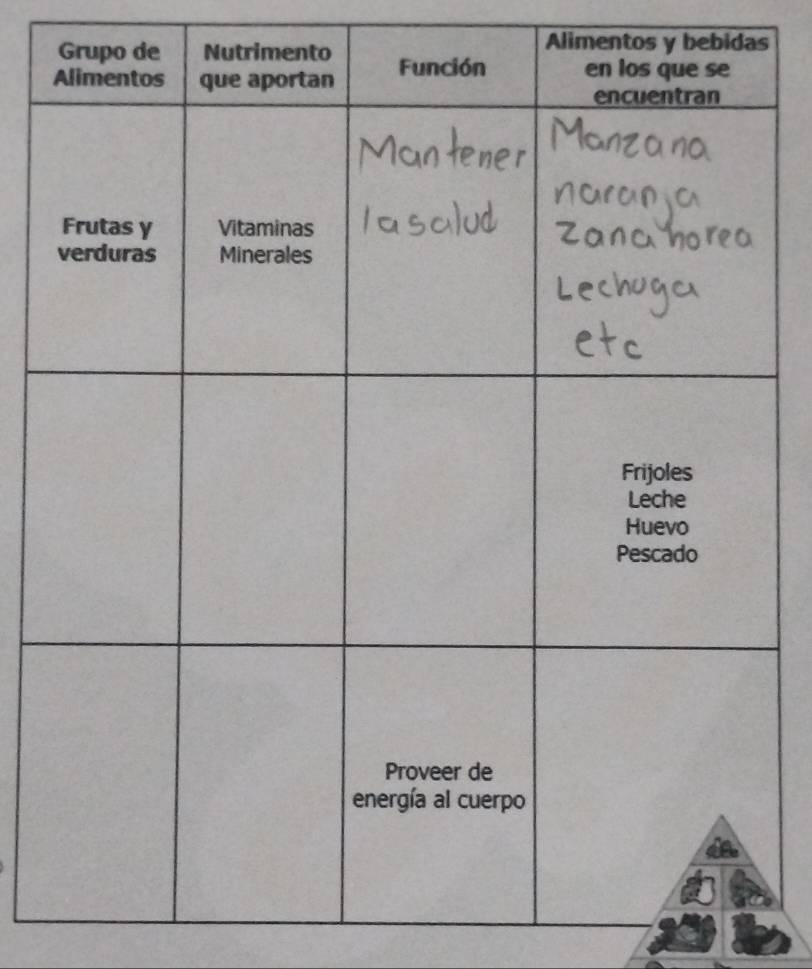 Grupo de
Alimentos
Nutrimento
que aportan
Función
Alimentos y bebidas
en los que se
encuentran
Frutas y
verduras
Vitaminas
Minerales
Mantener
la salud
Manzana
naranja
Zanahorea
Lechuga
etc
Frijoles
Leche
Huevo
Pescado
Proveer de
energía al cuerpo